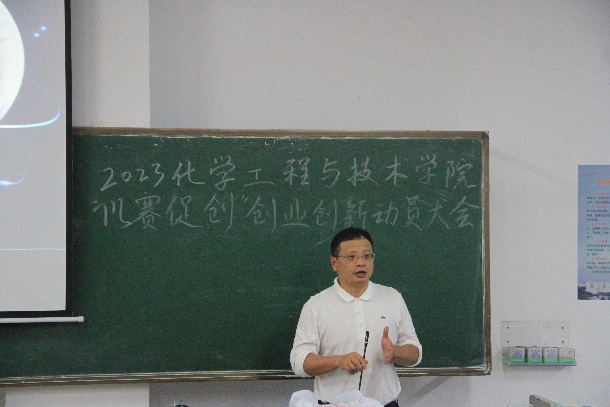 2023化学工程与技术学院
训赛促创"创业创新动员大会